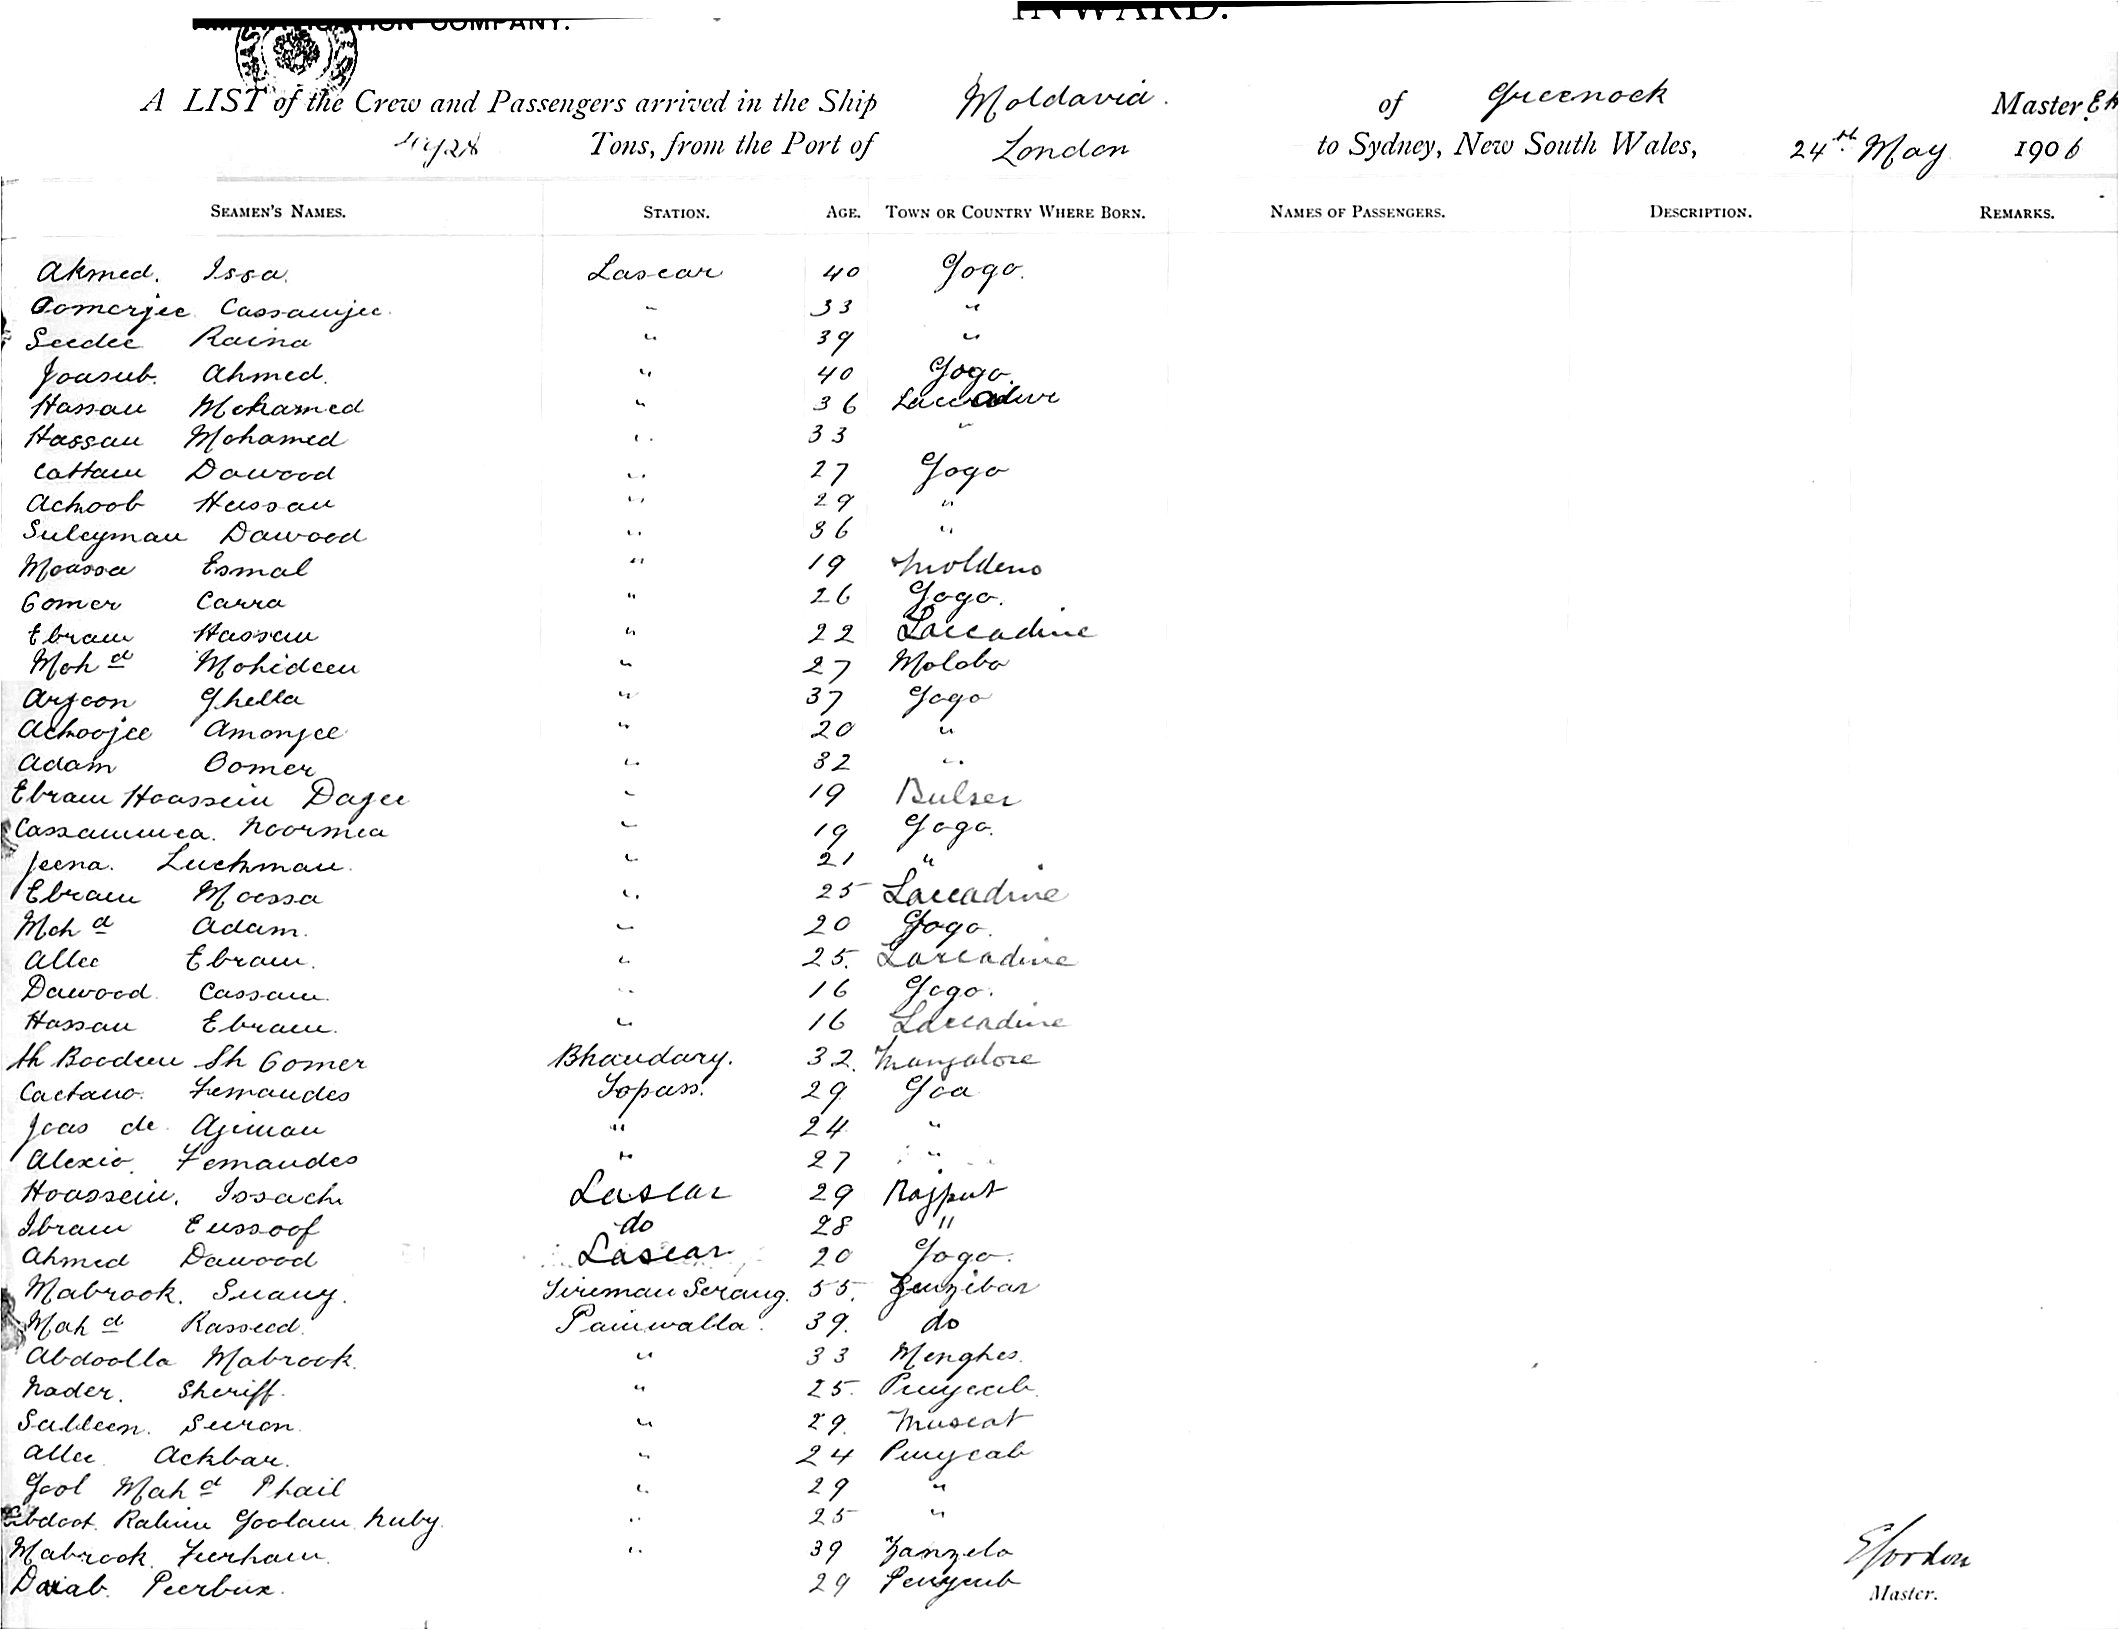 COMPANY. INWARD.
A LIST of the Crew and Passengers arrived in the Ship Moldavia. of Greenock Master E
Tons, from the Port of London to Sydney, New South Wales, 24th May 1906
SEAMEN'S NAMES. STATION. AGE. TOWN OR COUNTRY WHERE BORN. NAMES OF PASSENGERS. DESCRIPTION. REMARKS.
Ahmed. Issa. Lascar 40 Gogo.
Oomerjee Cassamjee. " 33 "
Seedee Raina " 39 "
Joasub. Ahmed. " 40 Gogo.
Hassan Mohamed " 36 Laccadive
Hassan Mohamed " 33 "
Cattam Dawood " 27 Gogo
Achoob Hassan " 29 "
Suleyman Dawood " 36 "
Moossa Esmal " 19 Moldeno
Oomer Carra " 26 Gogo.
Ebram Hassan " 22 Laccadive
Mohd Mohideen " 27 Molobo
Arjoon Ghella " 37 Gogo
Achoojee Amonjee " 20 "
Adam Oomer " 32 "
Ebram Hoassein Dajee " 19 Bulser
Cassammea. Noormea " 19 Gogo.
Jeena. Luchman. " 21 "
Ebram Moossa " 25 Laccadive
Mohd Adam. " 20 Gogo.
Allee Ebram. " 25. Laccadive
Dawood Cassam. " 16 Gogo.
Hassan Ebram. " 16 Laccadive
Sh Boodeen Sh Oomer Bhandary. 32. Mangalore
Caetano. Fernandes Topass. 29 Goa
Joas de Ajiman " 24 "
Alexio. Fernandes " 27 "
Hoassein. Issach Lascar 29 Rajput
Ibram Eussoof do 28 "
Ahmed Dawood Lascar 20 Gogo.
Mabrook. Suany. Fireman Serang. 55. Zanzibar
Mahd Rasseed. Painwalla. 39. do
Abdoolla Mabrook. " 33 Menghes.
Nader. Sheriff. " 25. Punjeab.
Salleen. Suron. " 29. Muscat
Allee Ackbar. " 24 Punjeab
Gool Mahd Phail " 29 "
Abdool. Rahim Goolam Nuby. " 25 "
Mabrook. Furham. " 39 Zanzelo
Darab. Peerbux. 29 Punjeub
E Gordon
Master.